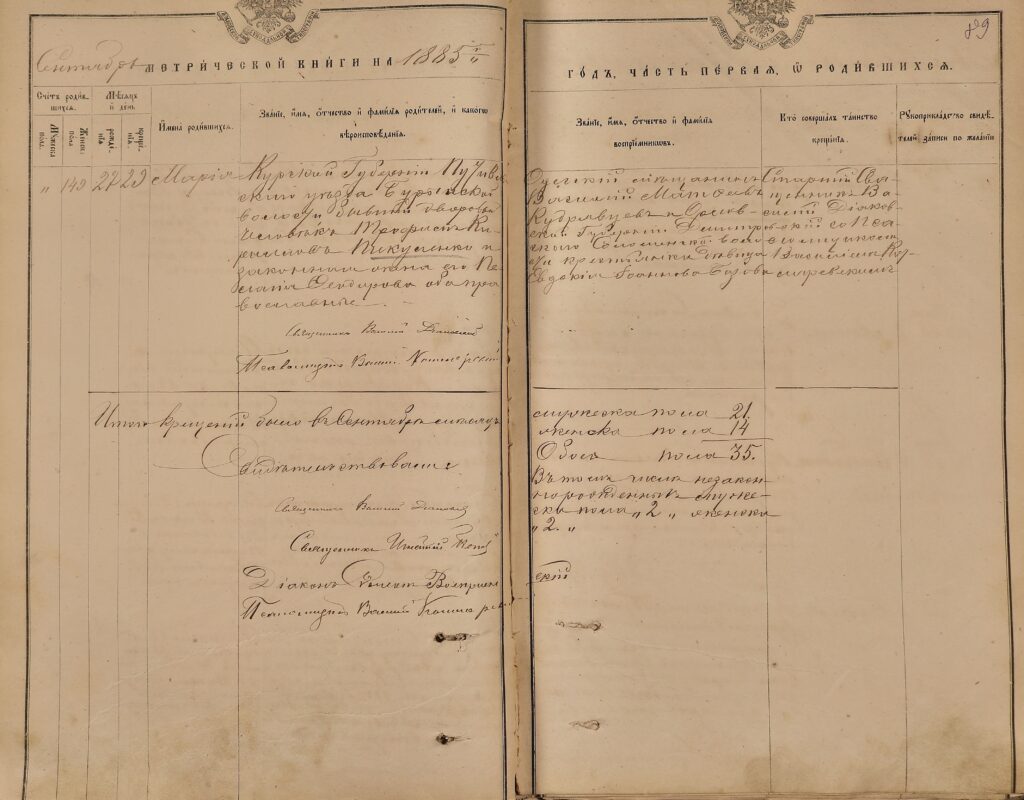 89
Сентябрь МЕТРИЧЕСКОЙ КНИГИ НА 1885
ГОДЪ, ЧАСТЬ ПЕРВАЯ, Ѿ РОДИВШИХСЯ.
Счетъ родившихся.
Мужеска пола.
Женска пола.
Мѣсяцъ и день
рожденія
крещенія.
Имена родившихся.
Званіе, имя, отчество и фамилія родителей, и какого
вѣроисповѣданія.
Званіе, имя, отчество и фамилія
воспріемниковъ.
Кто совершалъ таинство
крещенія.
Рукоприкладство свидѣ-
телей записи по желанію
" 149 27 29 Марія
Курской Губерніи Путивль
скаго уѣзда Бурынской
волости бывшій дворовый
человѣкъ Трофимъ Ки
риловъ и
законная жена его Пе
лагія Ѳеодорова оба пра
вославные.
Священникъ Василій
Псаломщикъ Василій
мѣщанинъ
Василій Матѳеевъ
Кудрявцевъ и Орлов-
ской Губерніи Дмитровскаго
волос
ти крестьянка дѣвица
Евдокія Іоаннова
Старшій Свя-
щенникъ Ва
силій Діаков
скій со Пса
ломщикомъ
Василіемъ
Итого крещеній было въ Сентябрѣ мѣсяцѣ
мужеска пола 21.
женска пола 14
Обоего пола 35.
Въ томъ числѣ незакон-
норожденныхъ муже-
ска пола „2„ женска
„2„
Свидѣтельствовали:
Священникъ Василій
Священникъ
Діаконъ
скій
Псаломщикъ Василій